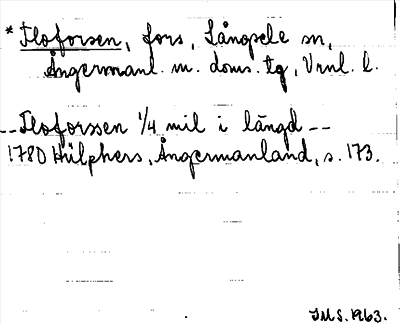 * Floforsen, fors, Långsele sn,
Ångermanl. m. doms. tg, Vnnl. l.
-- Floforssen 1/4 mil i längd --
1780 Hülphers, Ångermanland, s. 173.
IMS. 1963.